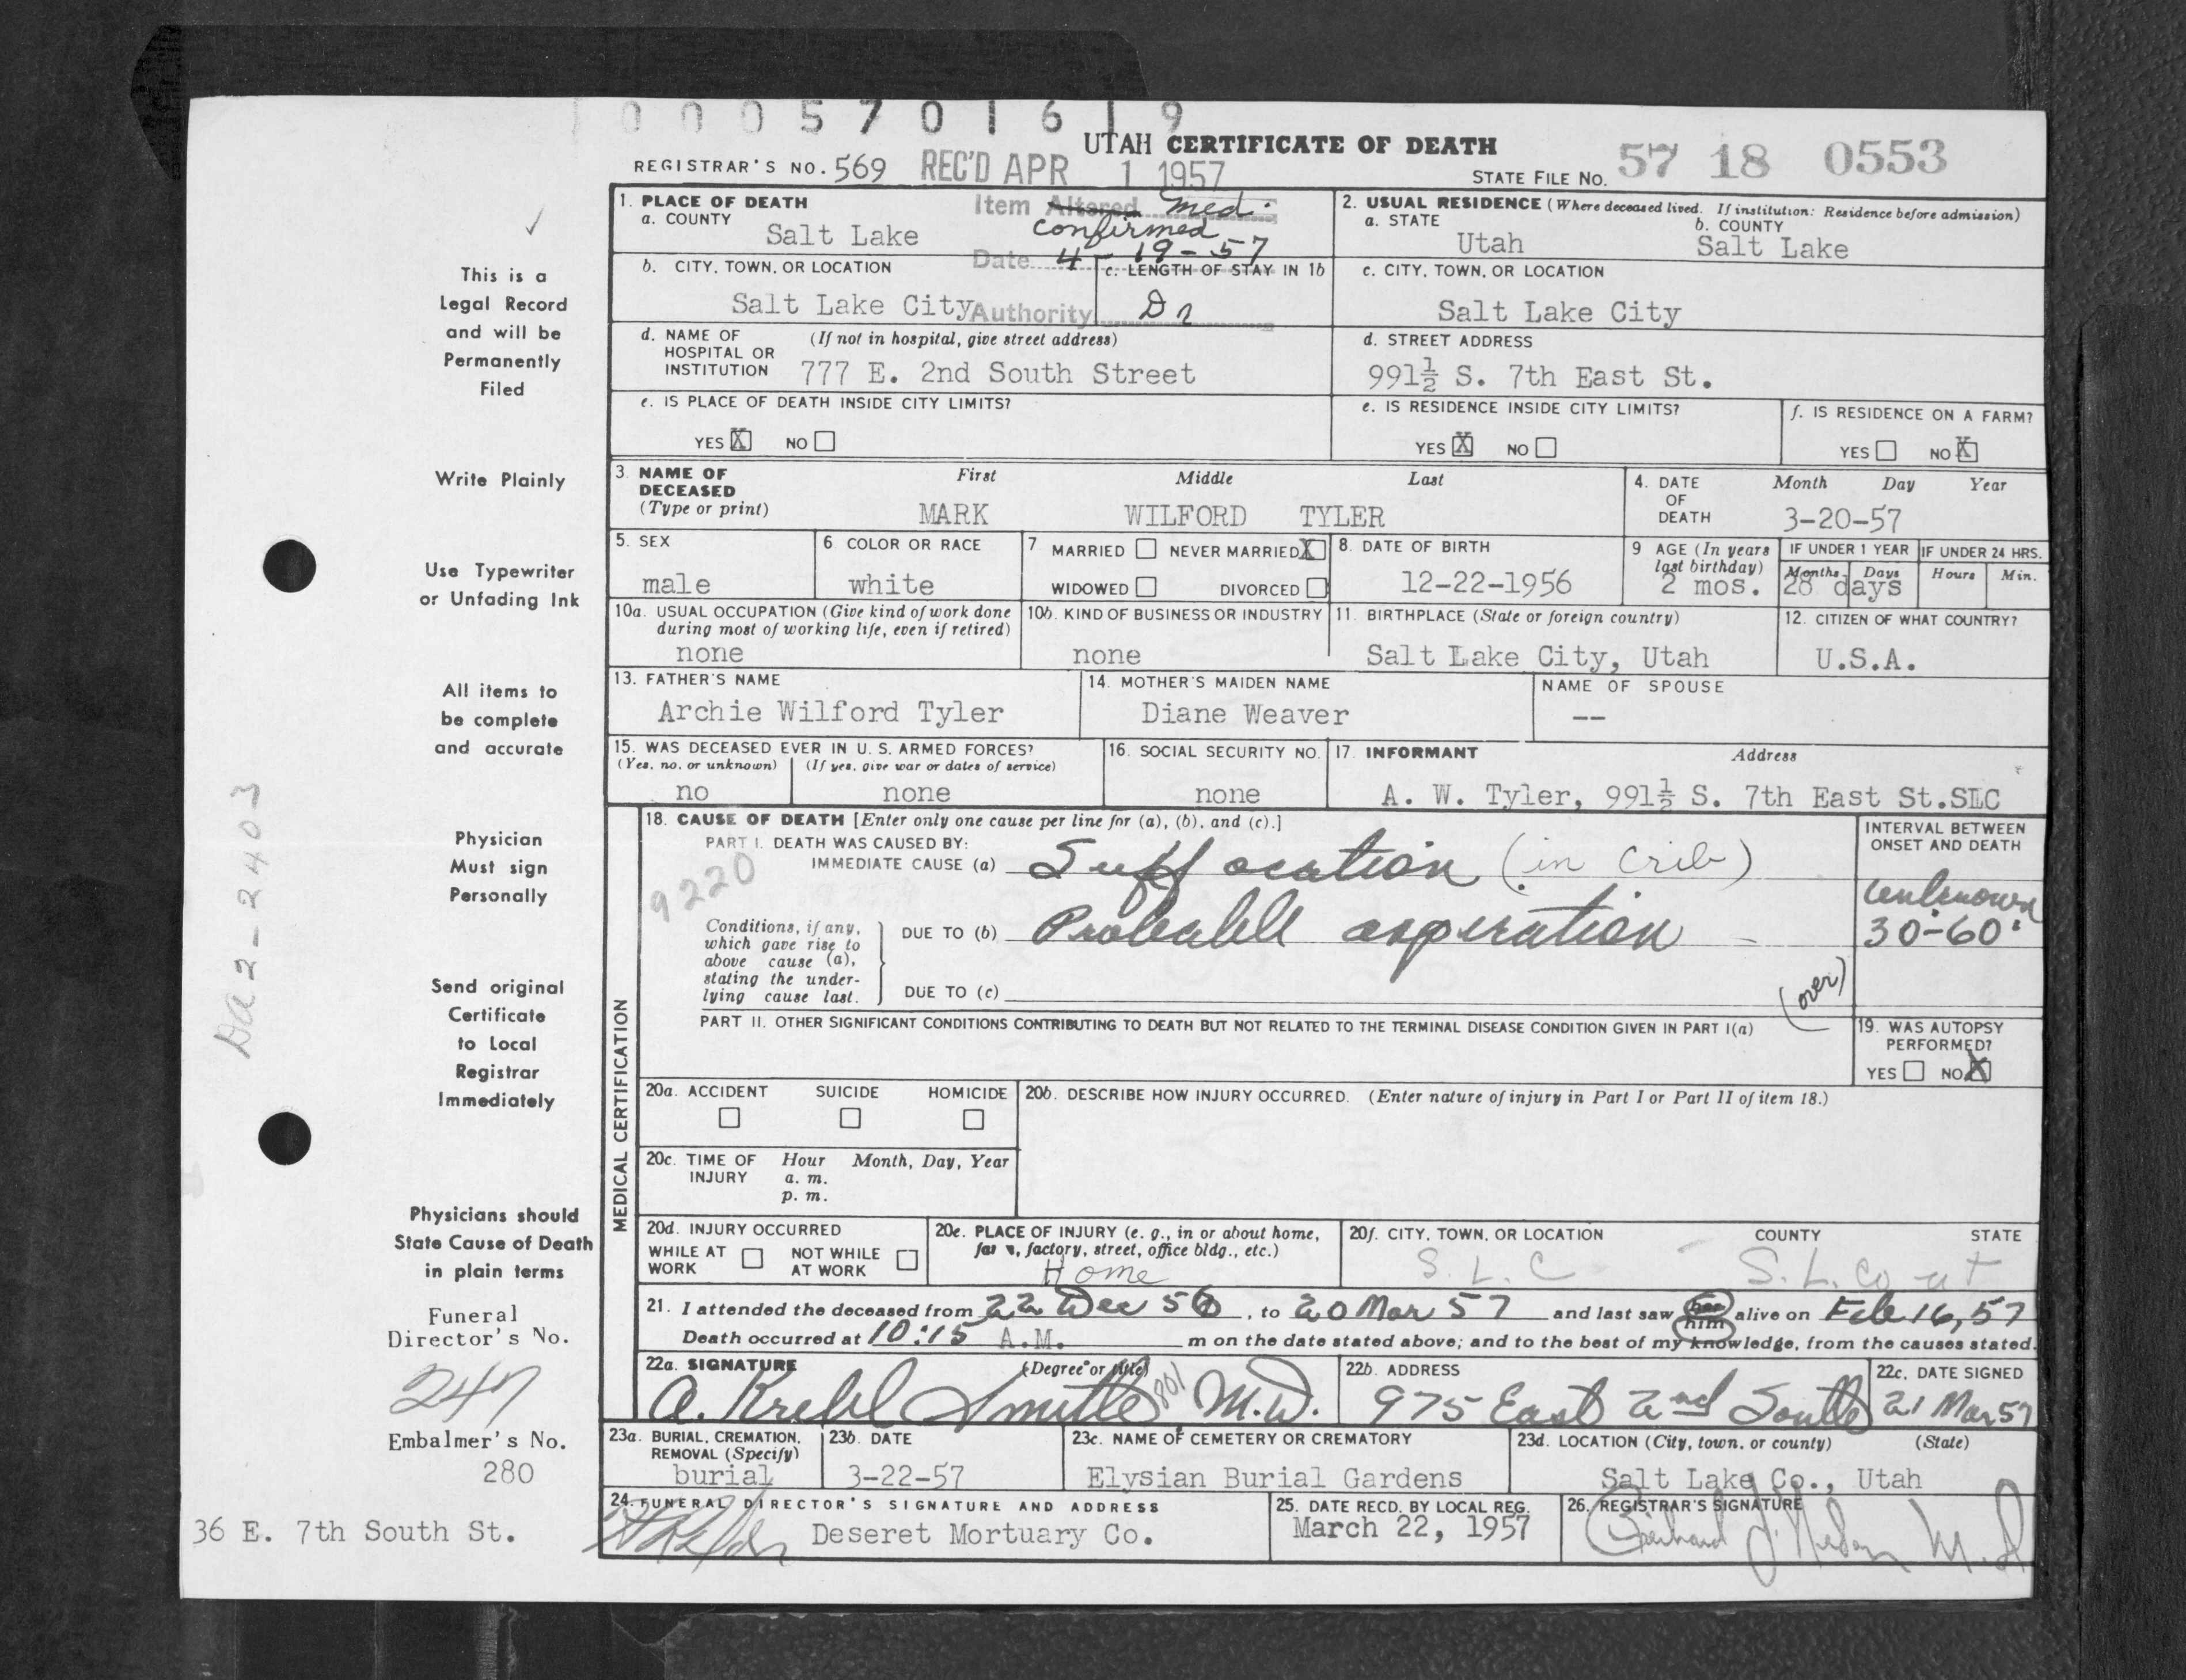 0 0 0 5 7 0 1 6 1 9
UTAH CERTIFICATE OF DEATH
REGISTRAR'S NO. 569 REC'D APR 1 1957
STATE FILE NO. 57 18 0553
1. PLACE OF DEATH
a. COUNTY
Salt Lake
Item Altered Med.
confirmed
Date 4-19-57
Authority Dr
2. USUAL RESIDENCE (Where deceased lived. If institution: Residence before admission)
a. STATE
Utah
b. COUNTY
Salt Lake
b. CITY, TOWN, OR LOCATION
Salt Lake City
c. LENGTH OF STAY IN 1b
c. CITY, TOWN, OR LOCATION
Salt Lake City
d. NAME OF HOSPITAL OR INSTITUTION
(If not in hospital, give street address)
777 E. 2nd South Street
d. STREET ADDRESS
991½ S. 7th East St.
e. IS PLACE OF DEATH INSIDE CITY LIMITS?
YES X NO
e. IS RESIDENCE INSIDE CITY LIMITS?
YES X NO
f. IS RESIDENCE ON A FARM?
YES NO X
3. NAME OF DECEASED
(Type or print)
First Middle Last
MARK WILFORD TYLER
4. DATE OF DEATH
Month Day Year
3-20-57
5. SEX
male
6 COLOR OR RACE
white
7 MARRIED NEVER MARRIED X
WIDOWED DIVORCED
8. DATE OF BIRTH
12-22-1956
9 AGE (In years last birthday)
2 mos.
IF UNDER 1 YEAR
Months Days
28 days
IF UNDER 24 HRS.
Hours Min.
10a. USUAL OCCUPATION (Give kind of work done during most of working life, even if retired)
none
10b. KIND OF BUSINESS OR INDUSTRY
none
11. BIRTHPLACE (State or foreign country)
Salt Lake City, Utah
12. CITIZEN OF WHAT COUNTRY?
U.S.A.
13. FATHER'S NAME
Archie Wilford Tyler
14. MOTHER'S MAIDEN NAME
Diane Weaver
NAME OF SPOUSE
--
15. WAS DECEASED EVER IN U. S. ARMED FORCES?
(Yes, no, or unknown) (If yes, give war or dates of service)
no none
16. SOCIAL SECURITY NO.
none
17. INFORMANT Address
A. W. Tyler, 991½ S. 7th East St.SLC
MEDICAL CERTIFICATION
18. CAUSE OF DEATH [Enter only one cause per line for (a), (b), and (c).]
PART I. DEATH WAS CAUSED BY:
IMMEDIATE CAUSE (a) Suffocation (in crib)
9220
INTERVAL BETWEEN ONSET AND DEATH
unknown
30-60'
Conditions, if any, which gave rise to above cause (a), stating the underlying cause last.
DUE TO (b) Probable aspiration
DUE TO (c)
(over)
PART II. OTHER SIGNIFICANT CONDITIONS CONTRIBUTING TO DEATH BUT NOT RELATED TO THE TERMINAL DISEASE CONDITION GIVEN IN PART I(a)
19. WAS AUTOPSY PERFORMED?
YES NO X
20a. ACCIDENT SUICIDE HOMICIDE
20b. DESCRIBE HOW INJURY OCCURRED. (Enter nature of injury in Part I or Part II of item 18.)
20c. TIME OF INJURY
Hour Month, Day, Year
a. m.
p. m.
20d. INJURY OCCURRED
WHILE AT WORK NOT WHILE AT WORK
20e. PLACE OF INJURY (e. g., in or about home, farm, factory, street, office bldg., etc.)
Home
20f. CITY, TOWN, OR LOCATION COUNTY STATE
S. L. C S. L. Co ut
21. I attended the deceased from 22 Dec 56, to 20 Mar 57 and last saw her him alive on Feb 16, 57
Death occurred at 10:15 A.M. m on the date stated above; and to the best of my knowledge, from the causes stated.
22a. SIGNATURE (Degree or title)
A. Krehl Smith M.D.
22b. ADDRESS
975 East 2nd South
22c. DATE SIGNED
21 Mar 57
23a. BURIAL, CREMATION, REMOVAL (Specify)
burial
23b. DATE
3-22-57
23c. NAME OF CEMETERY OR CREMATORY
Elysian Burial Gardens
23d. LOCATION (City, town, or county) (State)
Salt Lake Co., Utah
24. FUNERAL DIRECTOR'S SIGNATURE AND ADDRESS
Deseret Mortuary Co.
25. DATE RECD. BY LOCAL REG.
March 22, 1957
26. REGISTRAR'S SIGNATURE
M. D
This is a
Legal Record
and will be
Permanently
Filed
Write Plainly
Use Typewriter
or Unfading Ink
All items to
be complete
and accurate
Physician
Must sign
Personally
Send original
Certificate
to Local
Registrar
Immediately
Physicians should
State Cause of Death
in plain terms
Funeral
Director's No.
247
Embalmer's No.
280
36 E. 7th South St.
Da 2-2403